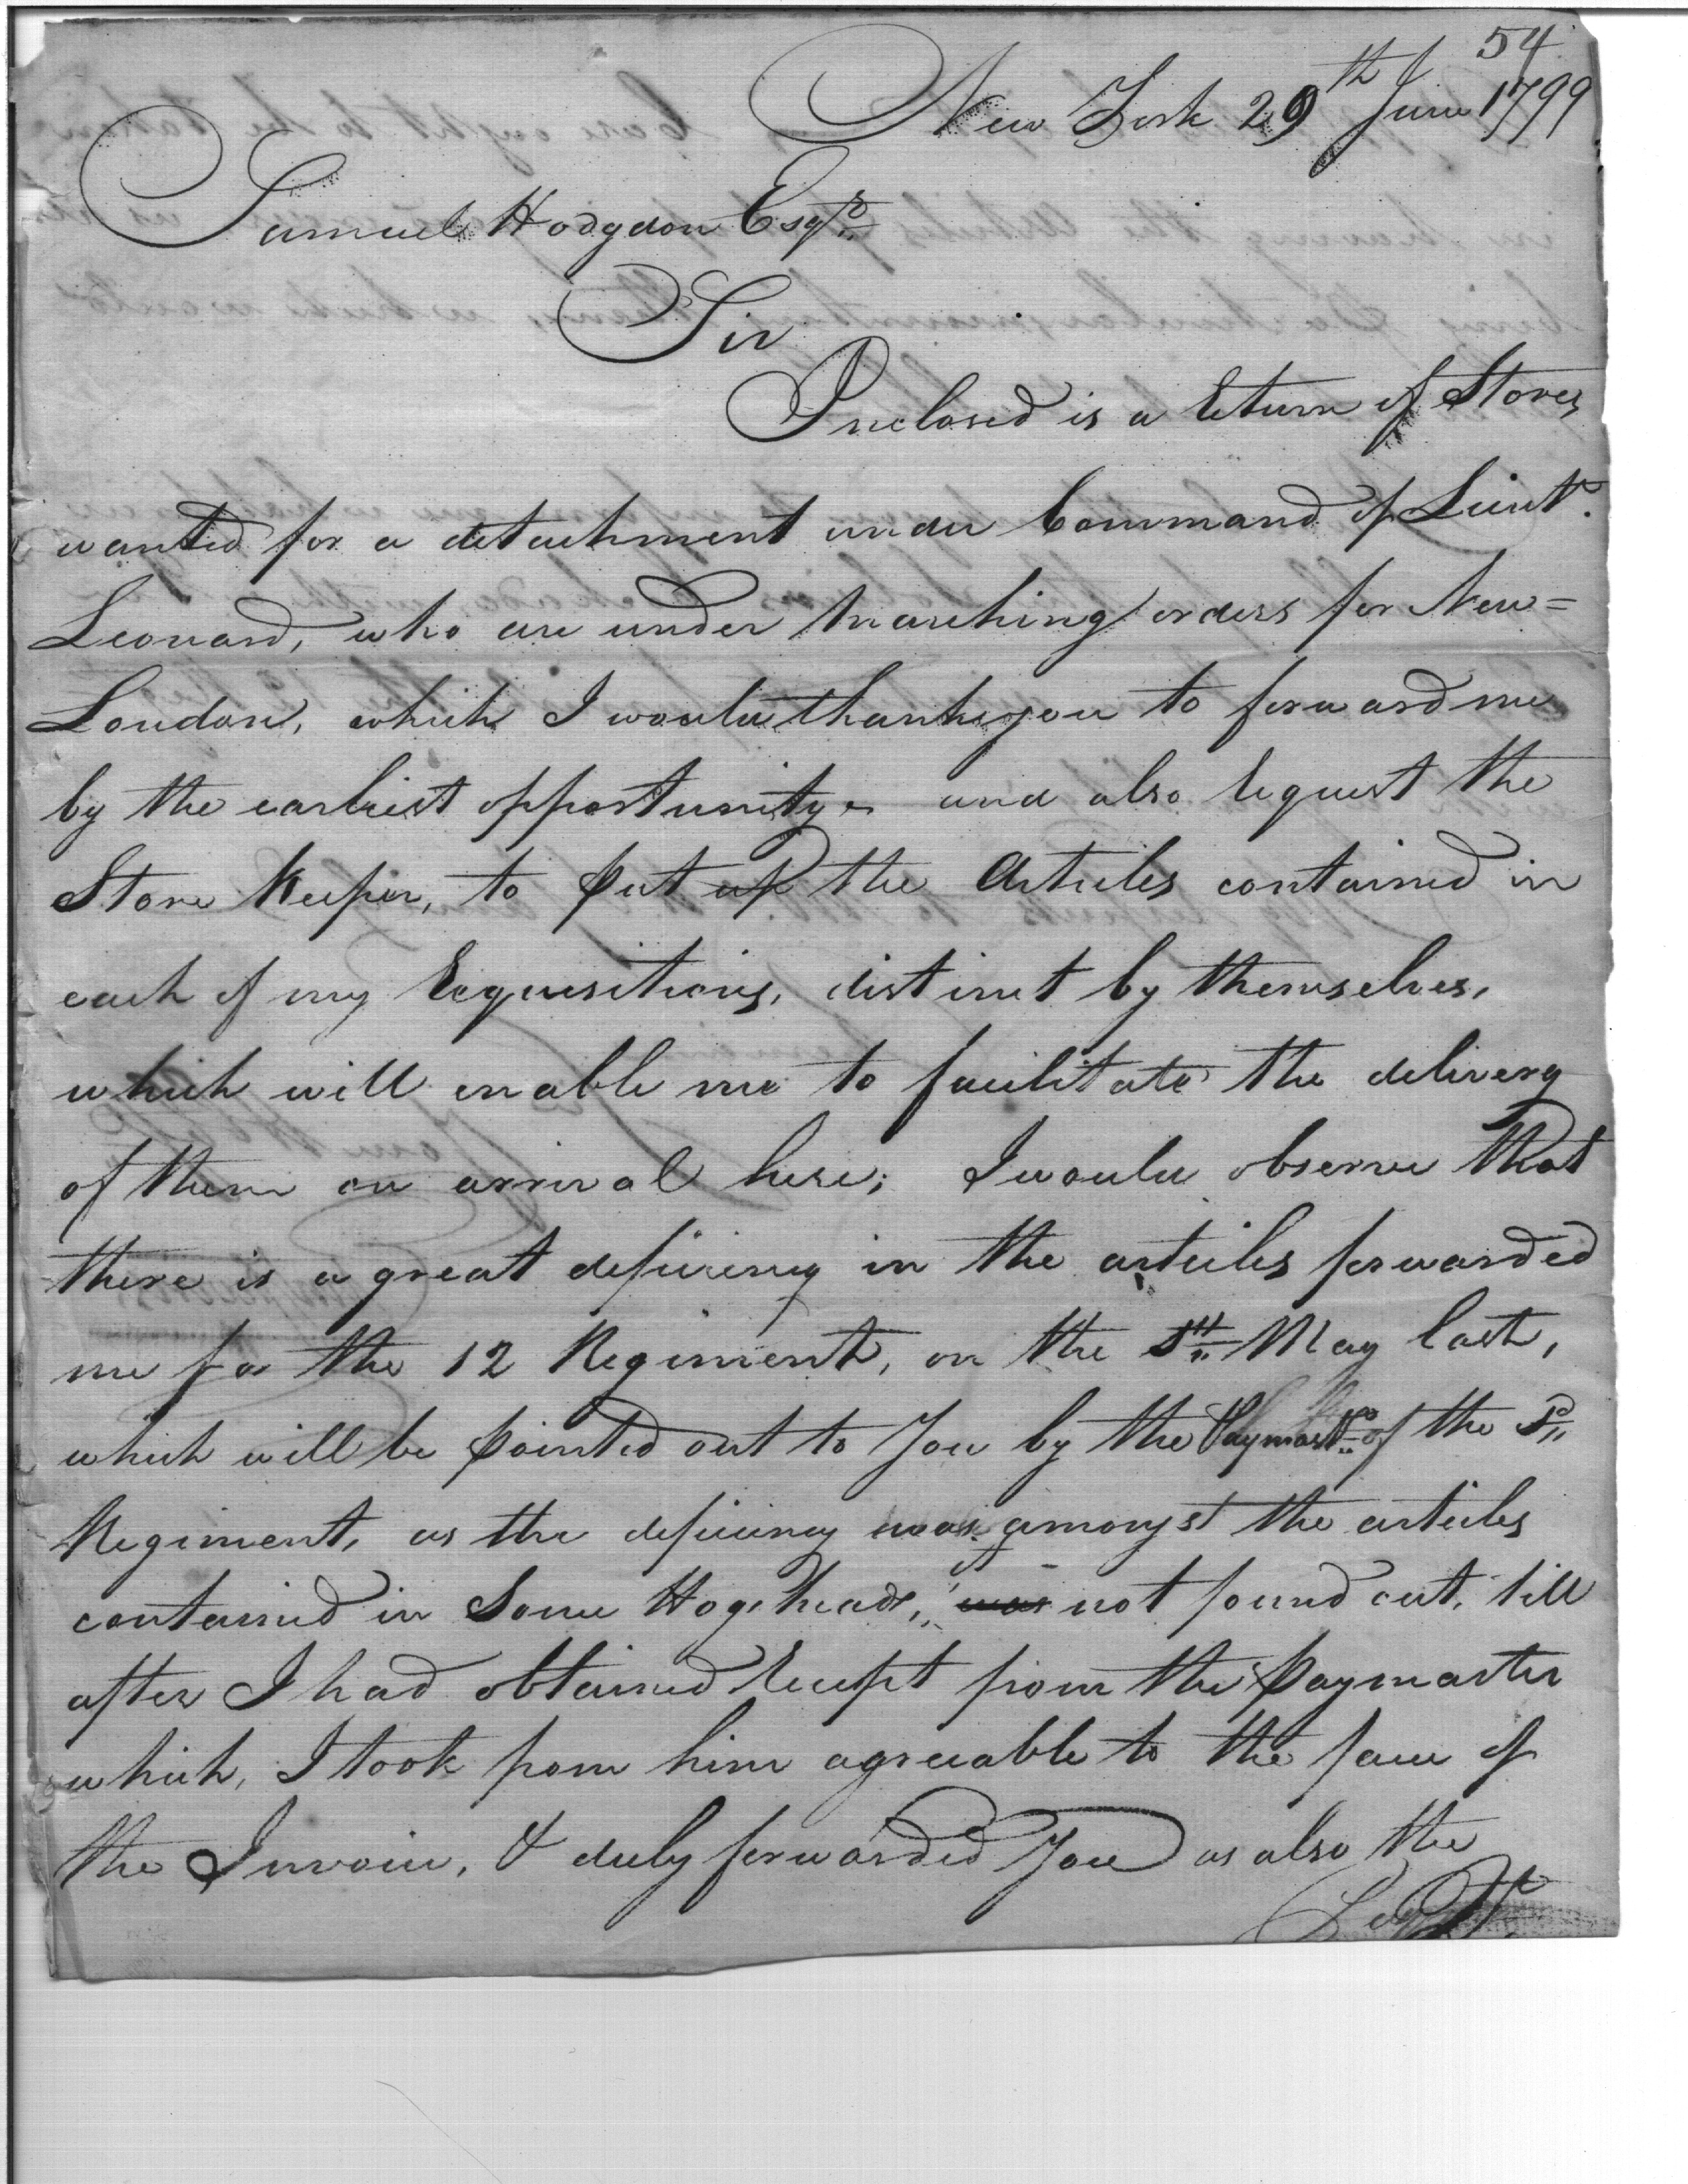 54
New York 29th June 1799
Samuel Hodgdon Esqr
Sir
Inclosed is a Return of Stores
wanted for a detachment under Command of Lieut.
Leonard, who are under Marching orders for New=
London, which I would thank you to forward me
by the earliest opportunity and also request the
Store Keeper, to put up the Articles contained in
each of my Requisitions, distinct by themselves,
which will enable me to facilitate the delivery
of them on arrival here; I would observe that
there is a great deficiency in the articles forwarded
me for the 12 Regiment, on the May last,
which will be pointed out to You by the Paymastr of the Sd
Regiment, as the deficiency was amongst the articles
contained in Some Hogsheads, not found out, till
after I had obtained Receipt from the Paymaster
which, I took from him agreeable to the face of
the Invoice, & duly forwarded You as also the